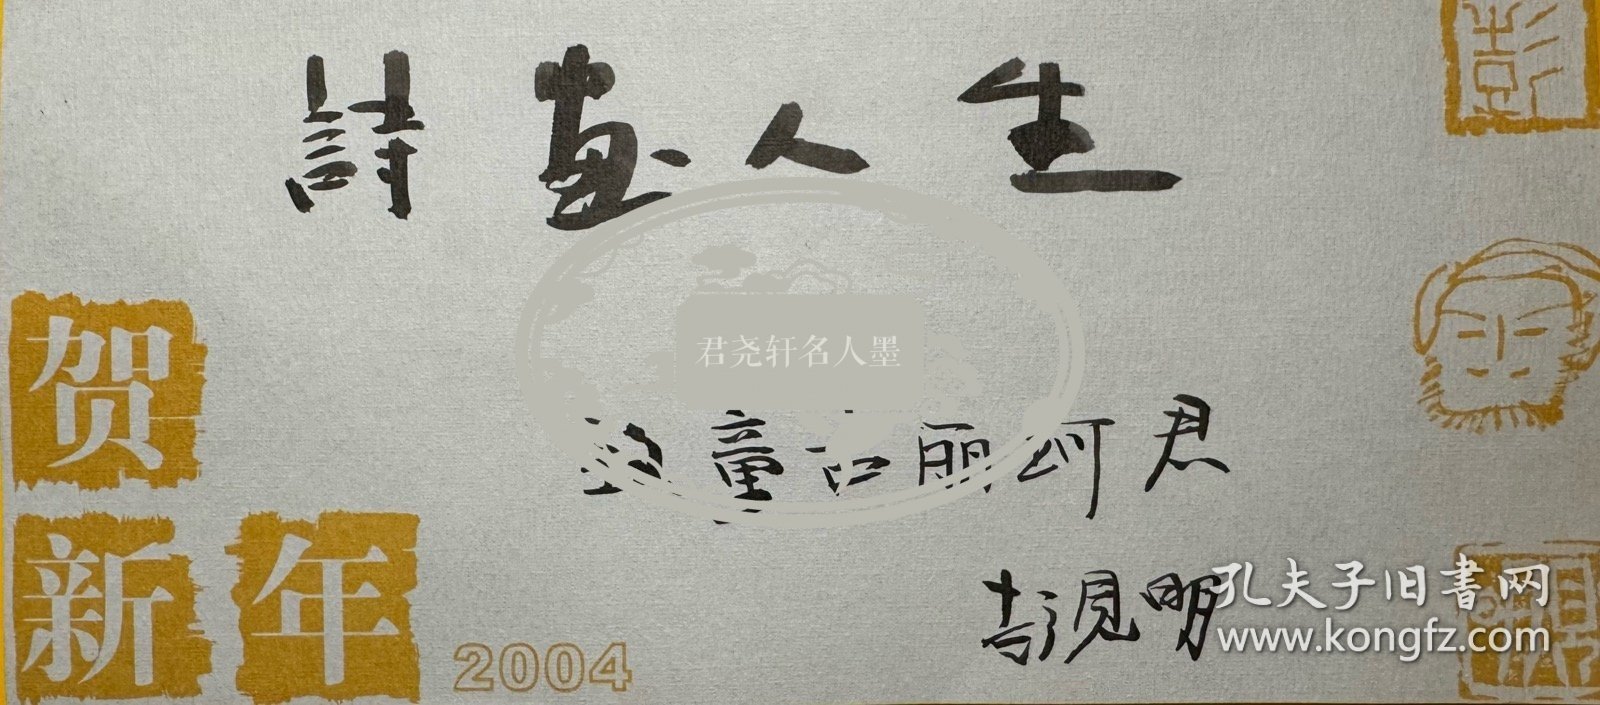 詩画人生
君尧轩名人墨
童古丽珂君
彭见明
贺
新年
2004
彭
孔夫子旧书网
www.kongfz.com